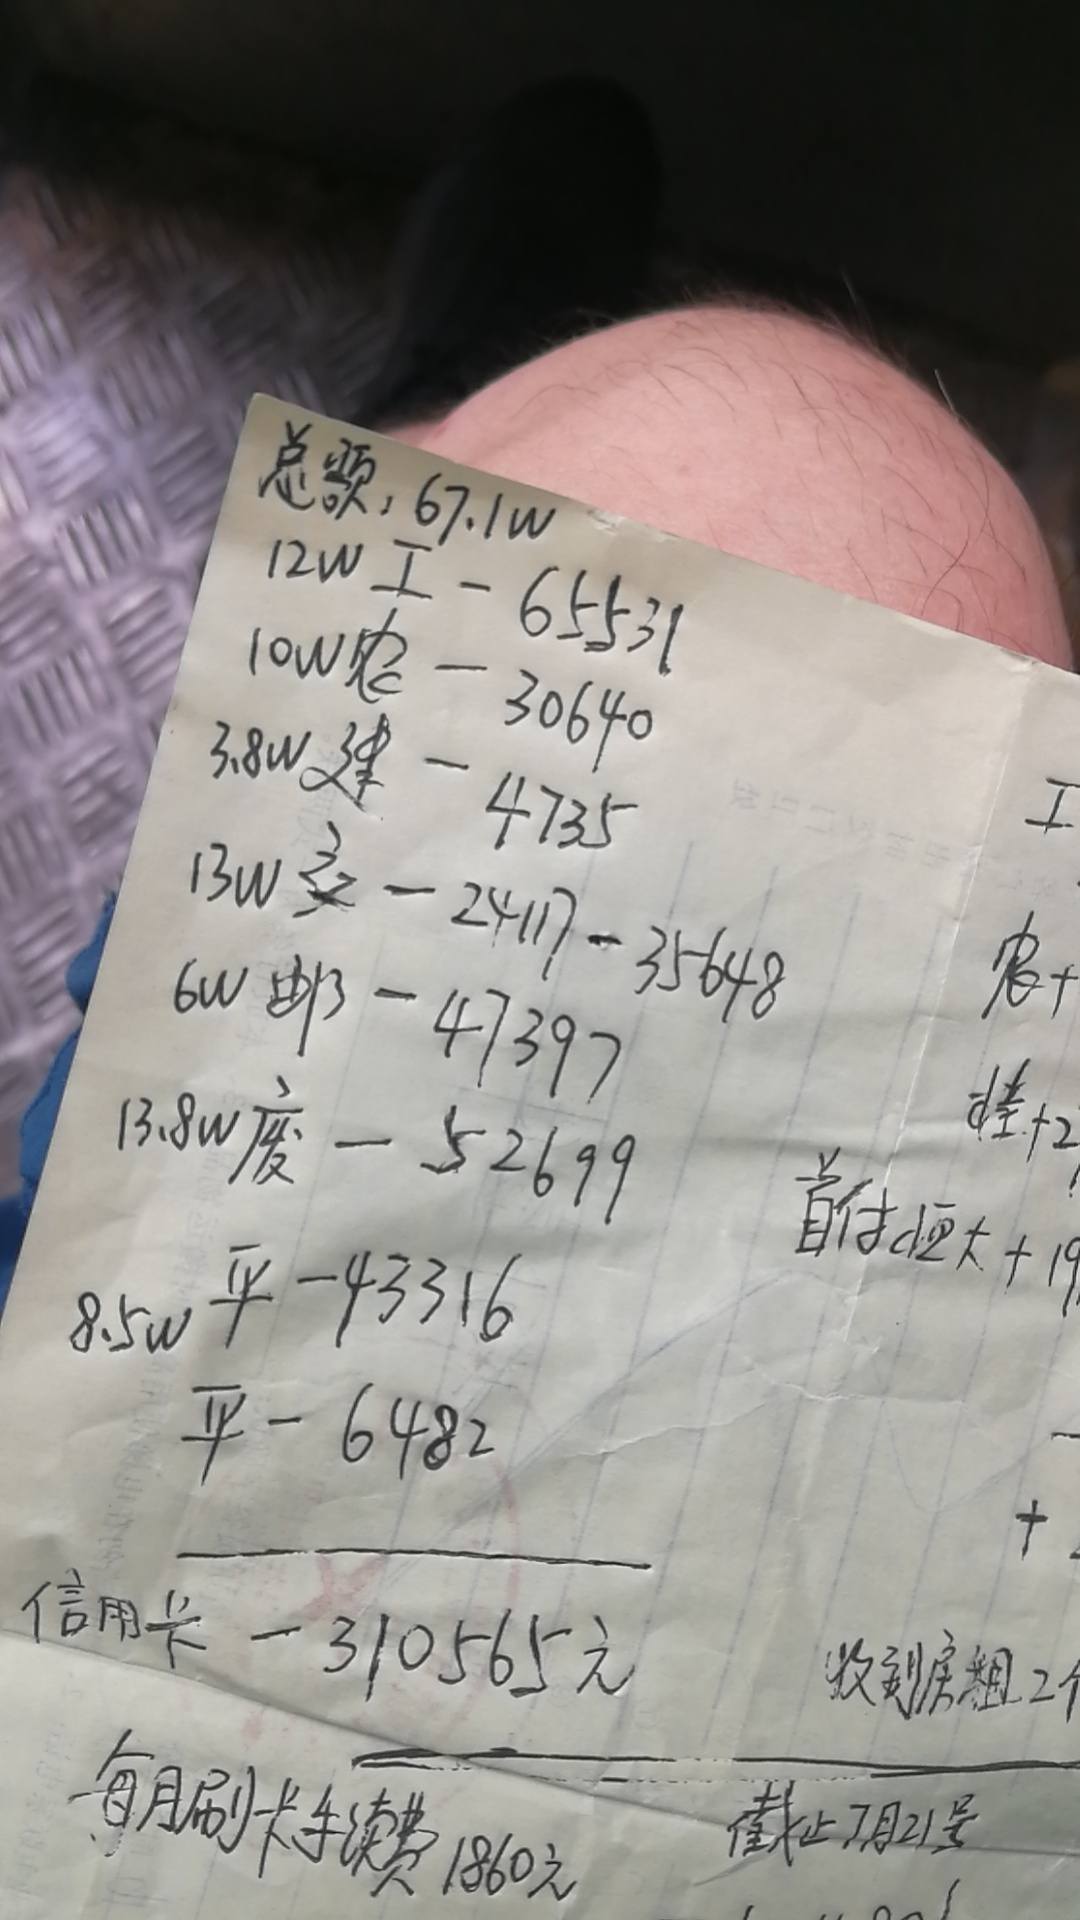 总额：67.1W
12W 工 - 65531
10W农 - 30640
3.8W 建 - 4735
13W 交 - 24117 - 35648
6W 邮 - 47397
13.8W 广 - 52699
8.5W 平 - 43316
平 - 6482
信用卡 - 310565元
每月刷卡手续费1860元
工
农+
建+2
首付恒大+19
+
收到房租2个
截止7月21号